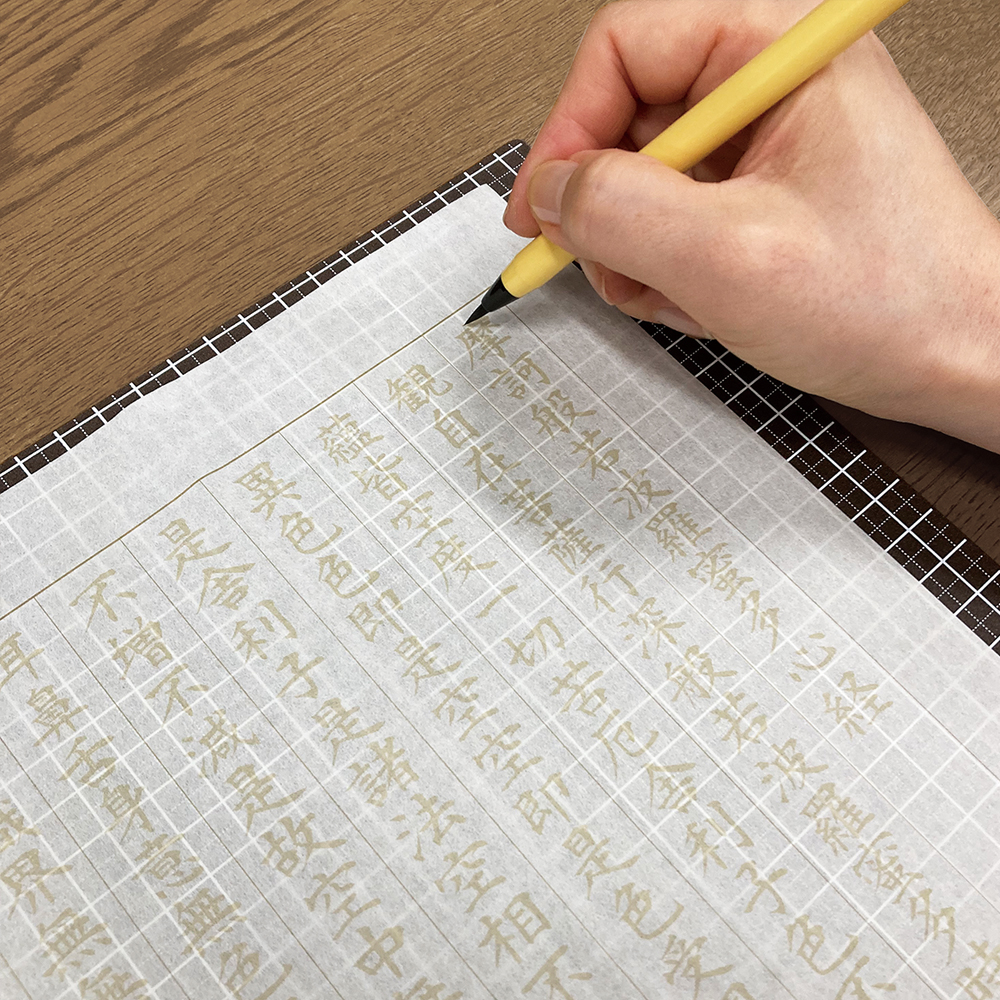 摩訶般若波羅蜜多心経
観自在菩薩行深般若波羅蜜多
蘊皆空度一切苦厄舎利子色不
異色色即是空空即是色受
是舎利子是諸法空相不
不増不減是故空中
耳鼻舌身意無色
界無無